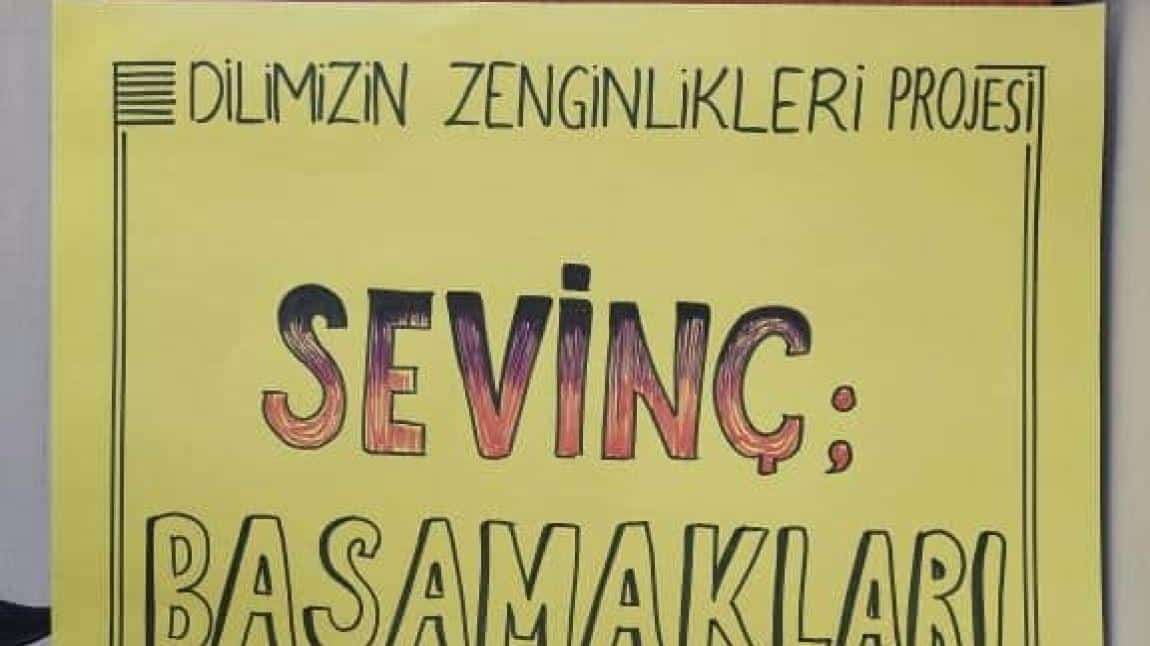 DİLİMİZİN ZENGİNLİKLERİ PROJESİ
SEVİNÇ;
BASAMAKLARI